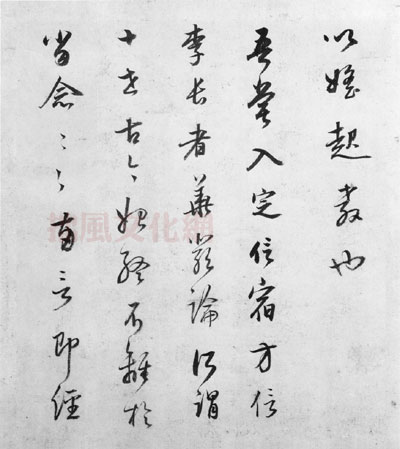 以婬起教也
吾嘗入定信宿方信
李長者華嚴論所謂
十世古今始終不離於
當念〻〻言即經
風文化網